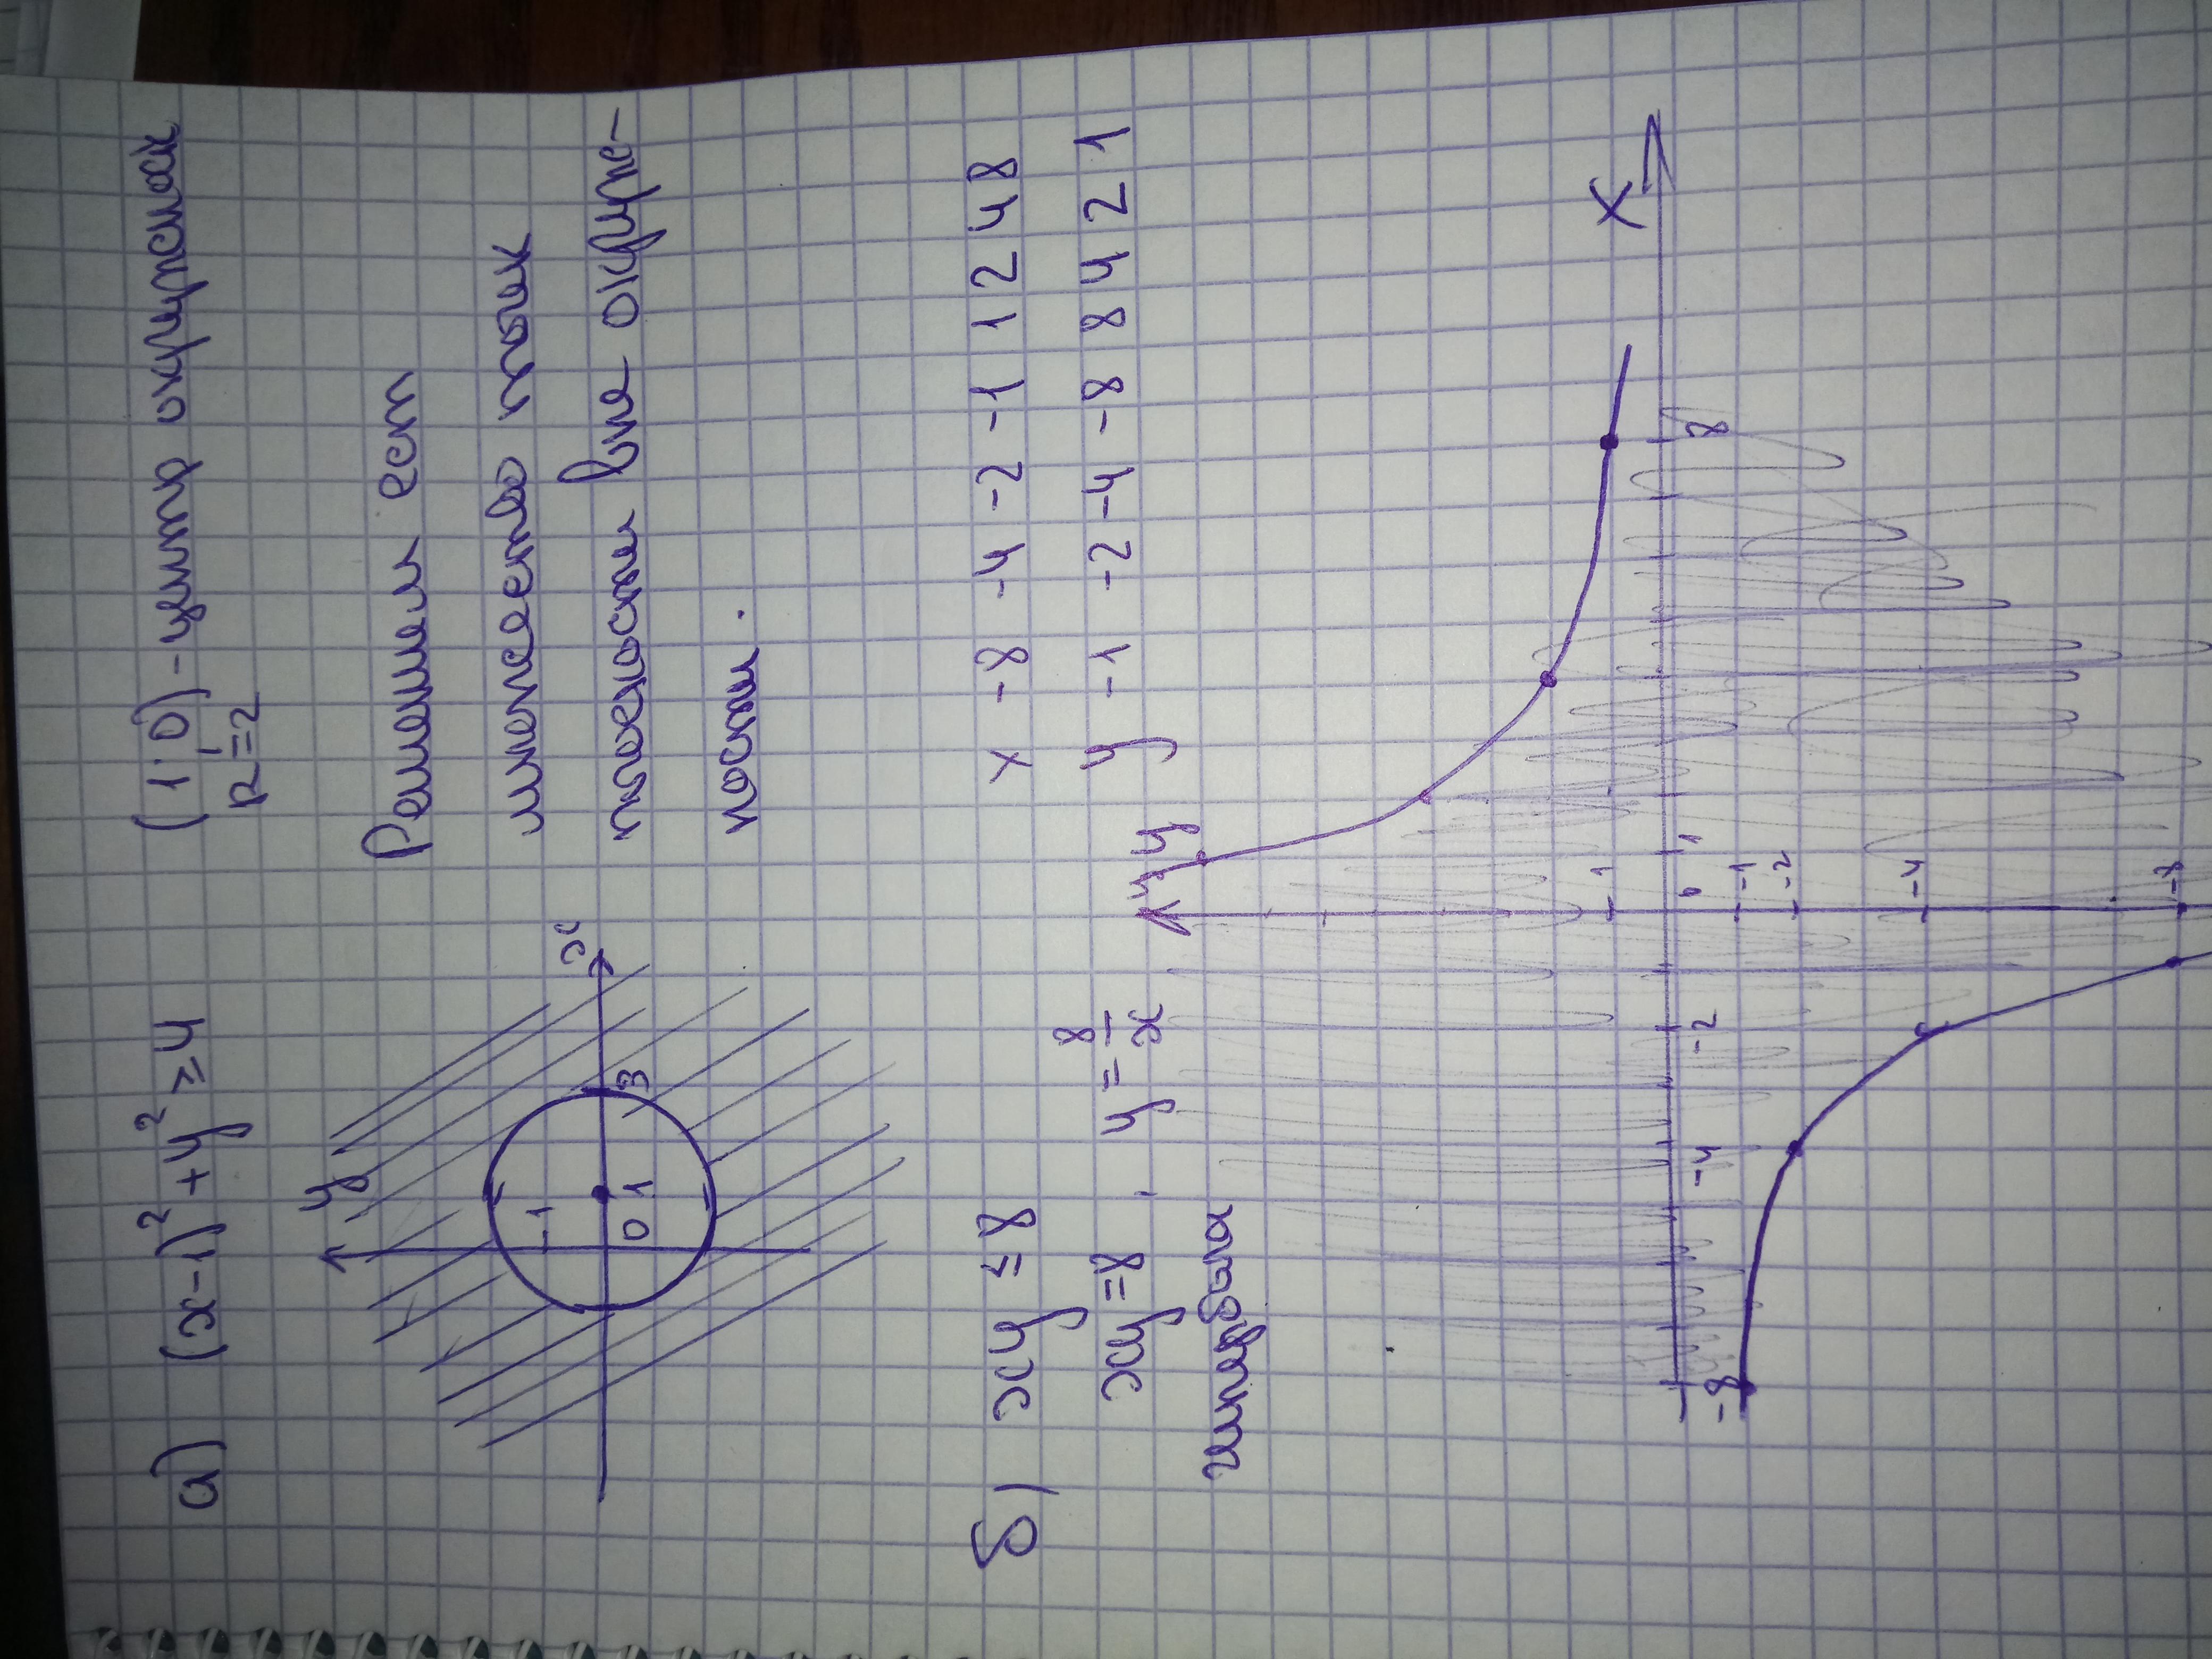 а) (x-1)² + y² ≥ 4
(1; 0) - центр окружнос
R=2
y
x
-1
0 1
3
Решением ест
множество точ
плоскости вне окруж-
ности.
б) xy ≤ 8
xy = 8, y = 8/x
гипербола
x -8 -4 -2 -1 1 2 4 8
y -1 -2 -4 -8 8 4 2 1
y
x
1
-8 -4 -2 0 1 8
-1
-2
-4
-8